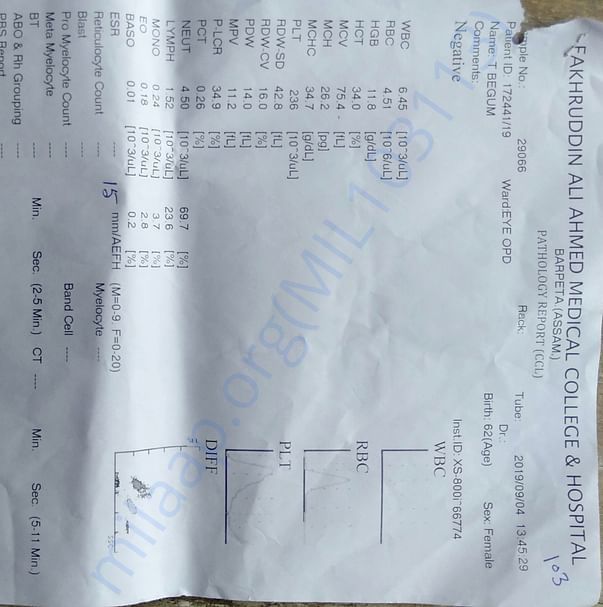 FAKHRUDDIN ALI AHMED MEDICAL COLLEGE & HOSPITAL
BARPETA (ASSAM)
PATHOLOGY REPORT (CCL)
103
ple No.: 29066 Rack: Tube: 2019/09/04 13:45:29
Patient ID: 172441/19 Ward:EYE OPD Dr.:
Name: T BEGUM Birth: 62(Age) Sex: Female
Comments:
Negative Inst.ID: XS-800i^66774
WBC 6.45 [10^3/uL]
RBC 4.51 [10^6/uL]
HGB 11.8 [g/dL]
HCT 34.0 [%]
MCV 75.4 - [fL]
MCH 26.2 [pg]
MCHC 34.7 [g/dL]
PLT 236 [10^3/uL]
RDW-SD 42.8 [fL]
RDW-CV 16.0 [%]
PDW 14.0 [fL]
MPV 11.2 [fL]
P-LCR 34.9 [%]
PCT 0.26 [%]
NEUT 4.50 [10^3/uL] 69.7 [%]
LYMPH 1.52 [10^3/uL] 23.6 [%]
MONO 0.24 [10^3/uL] 3.7 [%]
EO 0.18 [10^3/uL] 2.8 [%]
BASO 0.01 [10^3/uL] 0.2 [%]
WBC
RBC
PLT
DIFF
ESR ---- 15 mm/AEFH (M=0-9, F=0-20)
Reticulocyte Count ---- Myelocyte ----
Blast ----
Pro Myelocyte Count ---- Band Cell ----
Meta Myelocyte ----
BT ---- Min. Sec. (2-5 Min.) CT ---- Min. Sec. (5-11 Min.)
ABO & Rh Grouping ----
PBS Report ----
milaap.org(MIL10311